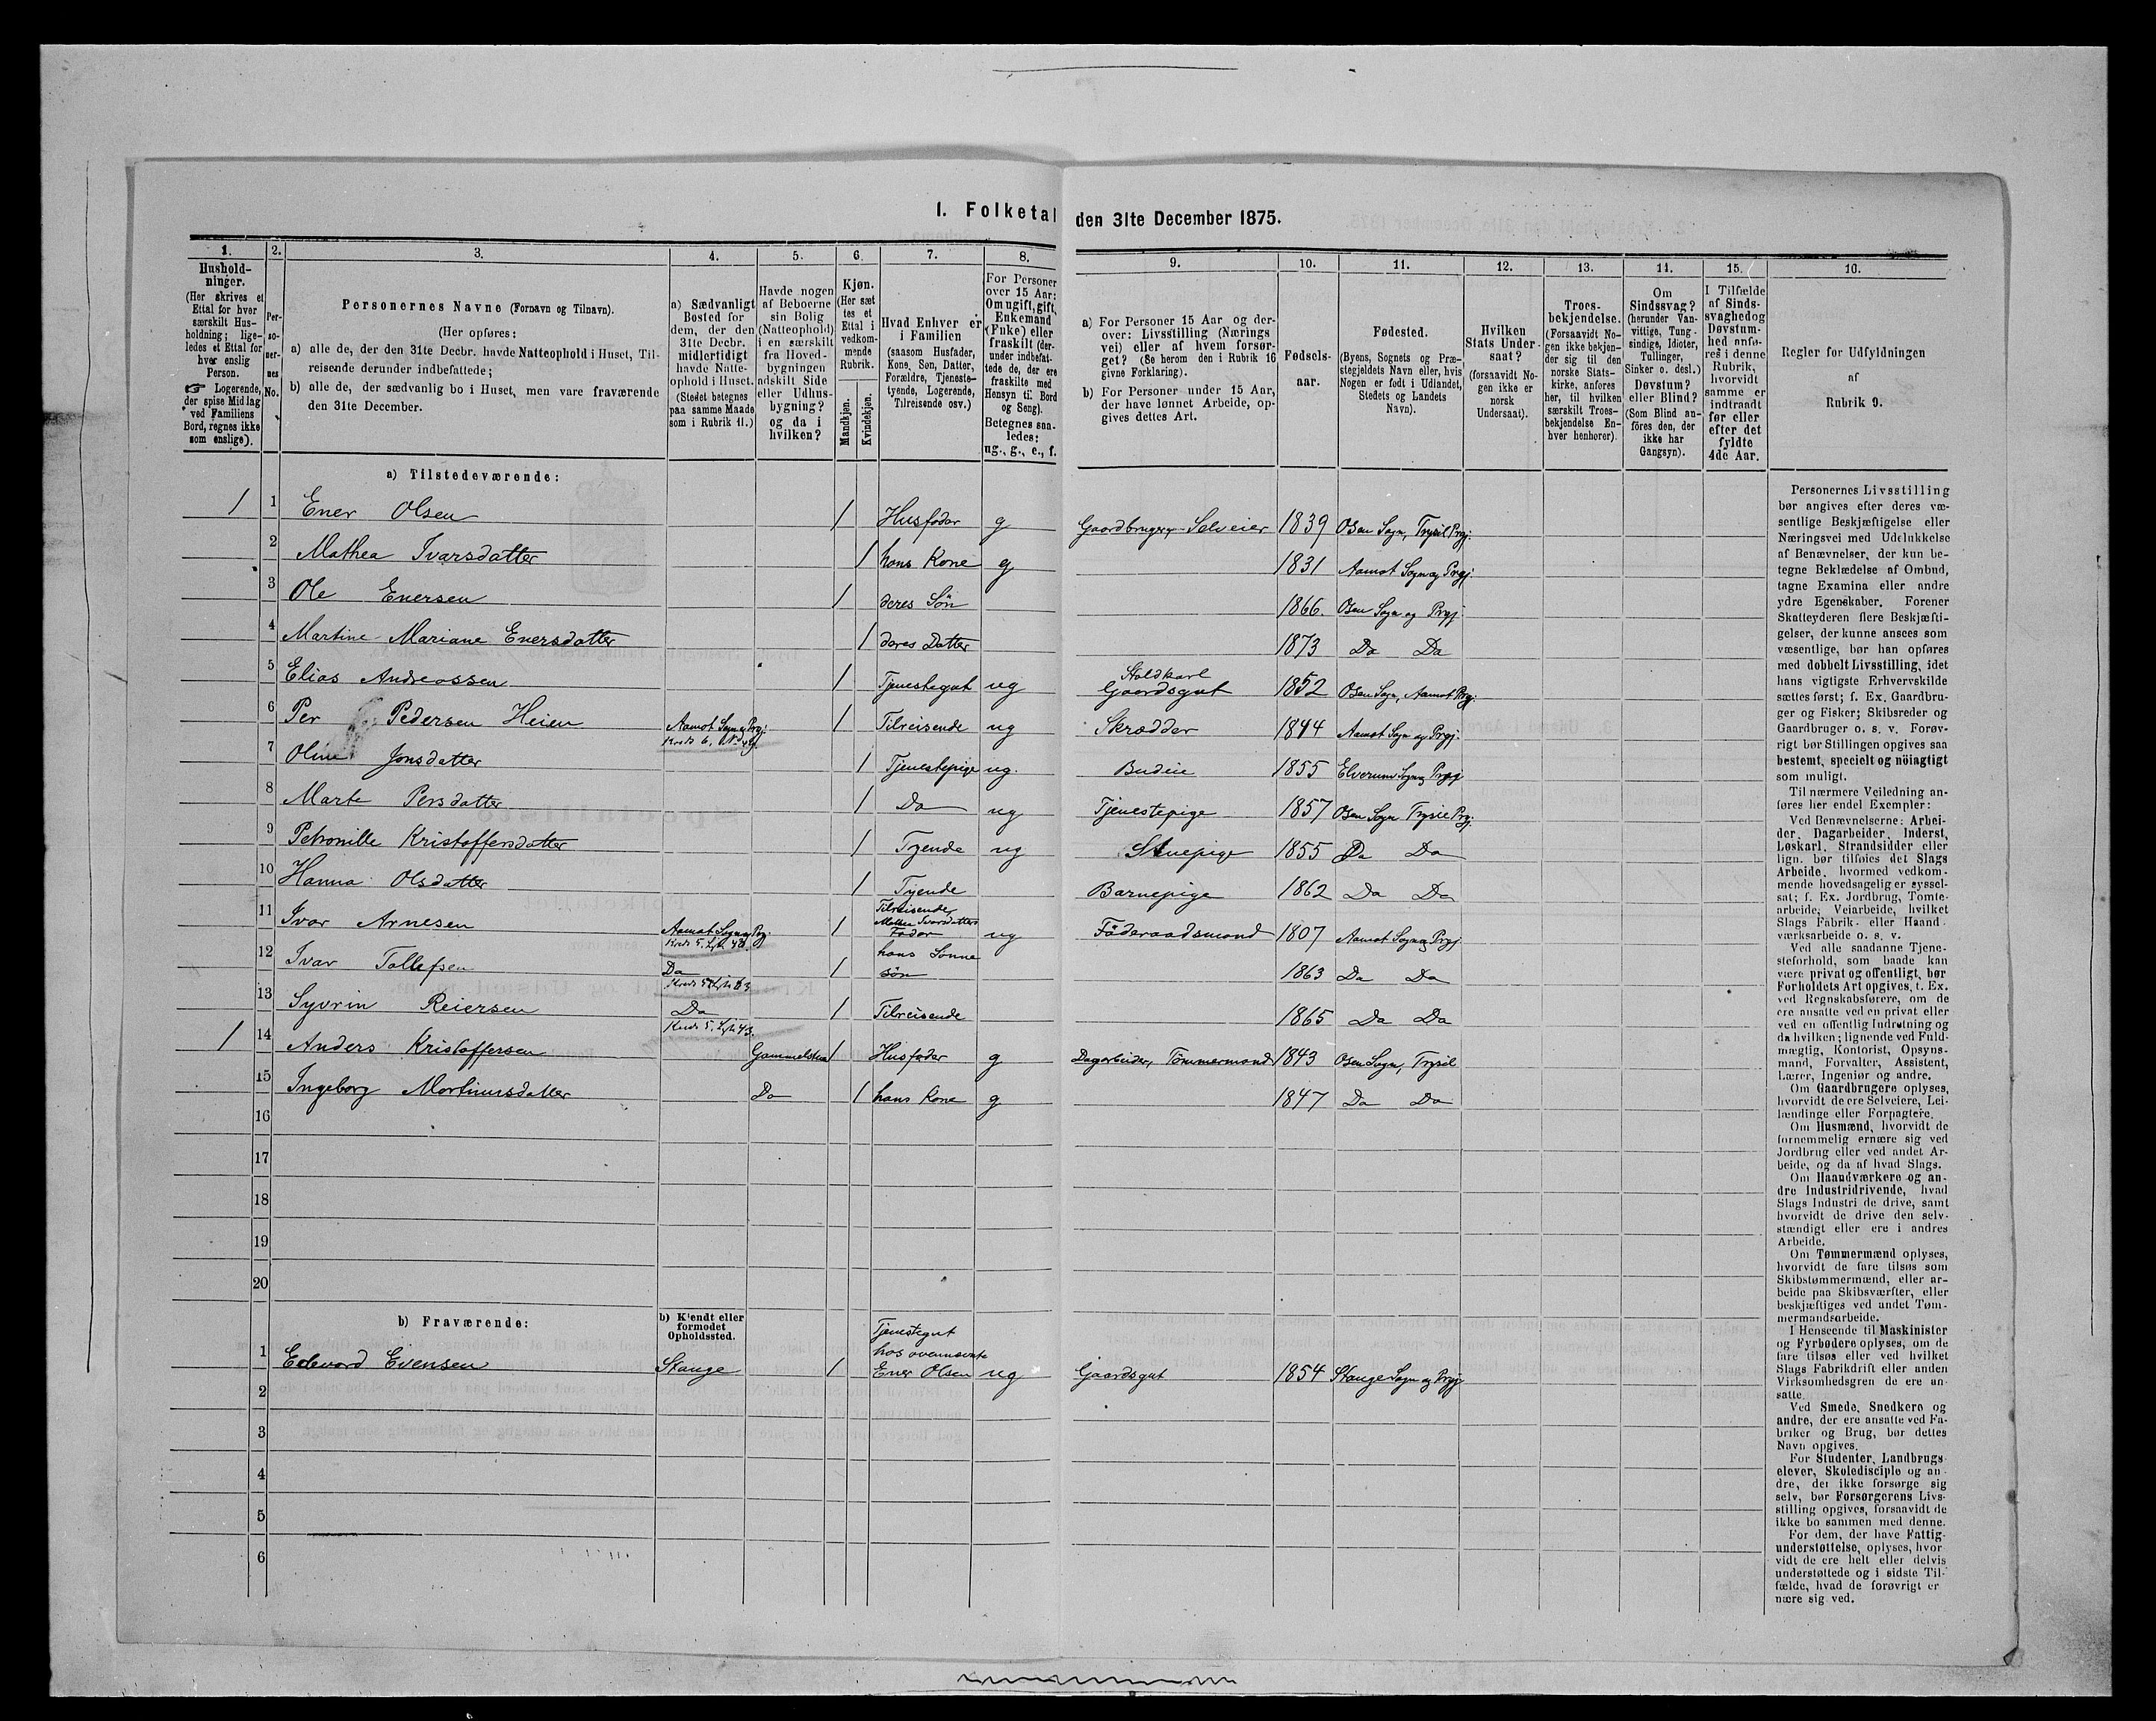 I. Folketal den 31te December 1875.
1. 2. 3. 4. 5. 6. 7. 8. 9. 10. 11. 12. 13. 14. 15. 16.
Hushold-
ninger.
(Her skrives et
Ettal for hver
særskilt Hus-
holdning; lige-
ledes et Ettal for
hver enslig
Person.
☞ Logerende,
der spise Middag
ved Familiens
Bord, regnes ikke
som enslige).
Per-
so-
ner-
nes
No.
Personernes Navne (Fornavn og Tilnavn).
(Her opføres:
a) alle de, der den 31te Decbr. havde Natteophold i Huset, Til-
reisende derunder indbefattede;
b) alle de, der sædvanlig bo i Huset, men vare fraværende
den 31te December.
a) Sædvanligt
Bosted for
dem, der den
31te Decbr.
midlertidigt
havde Natte-
ophold i Huset.
(Stedet betegnes
paa samme Maade
som i Rubrik 11.)
Havde nogen
af Beboerne
sin Bolig
(Natteophold)
i en særskilt
fra Hoved-
bygningen
adskilt Side
eller Udhus-
bygning?
og da i
hvilken?
Kjøn.
(Her sæt
tes et
Ettal i
vedkom-
mende
Rubrik.
Mandkjøn.
Kvindekjøn.
Hvad Enhver er
i Familien
(saasom Husfader,
Kone, Søn, Datter,
Forældre, Tjeneste-
tyende, Logerende,
Tilreisende osv.)
For Personer
over 15 Aar:
Om ugift, gift,
Enkemand
(Enke) eller
fraskilt (der-
under indbefat-
tede de, der ere
fraskilte med
Hensyn til Bord
og Seng).
Betegnes saa-
ledes:
ug., g., e., f.
a) For Personer 15 Aar og der-
over: Livsstilling (Nærings
vei) eller af hvem forsør-
get? (Se herom den i Rubrik 16
givne Forklaring).
b) For Personer under 15 Aar,
der have lønnet Arbeide, op-
gives dettes Art.
Fødsels-
aar.
Fødested.
(Byens, Sognets og Præ-
stegjeldets Navn eller, hvis
Nogen er født i Udlandet,
Stedets og Landets
Navn).
Hvilken
Stats Under-
saat?
(forsaavidt No-
gen ikke er
norsk
Undersaat).
Troes-
bekjendelse.
(Forsaavidt No-
gen ikke bekjen-
der sig til den
norske Stats-
kirke, anføres
her, til hvilken
særskilt Troes-
bekjendelse En-
hver henhører).
Om
Sindssvag?
(herunder Van-
vittige, Tung-
sindige, Idioter,
Tullinger,
Sinker o. desl.)
Døvstum?
eller Blind?
(Som Blind an-
føres den, der
ikke har
Gangsyn).
I Tilfælde
af Sinds-
svaghed og
Døvstum-
hed anfø-
res i denne
Rubrik,
hvorvidt
samme er
indtraadt
før eller
efter det
fyldte
4de Aar.
Regler for Udfyldningen
af
Rubrik 9.
a) Tilstedeværende:
1 1 Ener Olsen 1 Husfader g Gaardbruger, Selveier 1839 Osen Sogn, Trysil Prgj.
2 Mathea Ivarsdatter 1 hans Kone g 1831 Aamot Sogn og Prgj.
3 Ole Enersen 1 deres Søn 1866. Osen Sogn og Prgj
4 Martine Mariane Enersdatter 1 deres Datter 1873 Do Do
5 Elias Andreassen 1 Tjenestegut ug Staldkarl Gaardsgut 1852 Osen Sogn, Aamot Prgj.
6 Per Pedersen Heien Aamot Sogn og Prgj. Kreds 6, 1 Tilreisende ug Skrædder 1844 Aamot Sogn og Prgj.
7 Oline Jonsdatter 1 Tjenestepige ug. Budeie 1855 Elverum Sogn og Prgj
8 Marte Persdatter 1 Do ug Tjenestepige 1857 Osen Sogn Trysil Prgj.
9 Petronille Kristoffersdatter 1 Tyende ug Stuepige 1855 Do Do
10 Hanna Olsdatter 1 Tyende Barnepige 1862 Do Do
11 Ivar Arnesen Aamot Sogn og Prgj. Kreds 5. 1 Tilreisende, Mathea Ivarsdatters Fader ug Føderaadsmand 1807 Aamot Sogn og Prgj
12 Ivar Tollefsen Do 1 hans Sønne søn 1863 Do Do
13 Syvrin Reiersen Do Kreds 5. 43. 1 Tilreisende 1865 Do Do
1 14 Anders Kristoffersen Gammelstua 1 Husfader g Dagarbeider, Tømmermand 1843 Osen Sogn, Trysil
15 Ingeborg Mortinusdatter Do 1 hans Kone g 1847 Do Do
16
17
18
19
20
b) Fraværende:
b) Kjendt eller
formodet
Opholdssted.
1 Edevard Evensen Stange 1 Tjenestegut hos ovennævnte Ener Olsen ug Gaardsgut 1854 Stange Sogn og Prgj
2
3
4
5
6
Personernes Livsstilling
bør angives efter deres væ-
sentlige Beskjæftigelse eller
Næringsvei med Udelukkelse
af Benævnelser, der kun be-
tegne Beklædelse af Ombud,
tagne Examina eller andre
ydre Egenskaber. Forener
Skatteyderen flere Beskjæfti-
gelser, der kunne ansees som
væsentlige, bør han opføres
med dobbelt Livsstilling, idet
hans vigtigste Erhvervskilde
sættes først; f. Ex. Gaardbru-
ger og Fisker; Skibsreder og
Gaardbruger o. s. v. Forøv-
rigt bør Stillingen opgives saa
bestemt, specielt og nöiagtigt
som muligt.
Til nærmere Veiledning an-
føres her endel Exempler:
Ved Benævnelserne: Arbei-
der, Dagarbeider, Inderst,
Løskarl, Strandsidder eller
lign. bør tilføies det Slags
Arbeide, hvormed vedkom-
mende hovedsagelig er syssel-
sat; f. Ex. Jordbrug, Tomte-
arbeide, Veiarbeide, hvilket
Slags Fabrik- eller Haand-
værksarbeide o. s. v.
Ved alle saadanne Tjene-
steforhold, som baade kan
være privat og offentligt, bør
Forholdets Art opgives, t. Ex.
ved Regnskabsførere, om de
ere ansatte ved en privat eller
ved en offentlig Indretning og
da hvilken; lignende ved Fuld-
mægtig, Kontorist, Opsyns-
mand, Forvalter, Assistent,
Lærer, Ingeniør og andre.
Om Gaardbrugere oplyses,
hvorvidt de ere Selveiere, Lei-
lændinge eller Forpagtere.
Om Husmænd, hvorvidt de
fornemmelig ernære sig ved
Jordbrug eller ved andet Ar-
beide, og da af hvad Slags.
Om Haandværkere og an-
dre Industridrivende, hvad
Slags Industri de drive, samt
hvorvidt de drive den selv-
stændigt eller ere i andres
Arbeide.
Om Tømmermænd oplyses,
hvorvidt de fare tilsøs som
Skibstømmermænd, eller ar-
beide paa Skibsværfter, eller
beskjæftiges ved andet Tøm-
mermandsarbeide.
I Henseende til Maskinister
og Fyrbødere oplyses, om de
fare tilsøs eller ved hvilket
Slags Fabrikdrift eller anden
Virksomhedsgren de ere an-
satte.
Ved Smede, Snedkere og
andre, der ere ansatte ved Fa-
briker og Brug, bør dettes
Navn opgives.
For Studenter, Landbrugs-
elever, Skoledisciple og an-
dre, der ikke forsørge sig
selv, bør Forsørgerens Livs-
stilling opgives, forsaavidt de
ikke bo sammen med denne.
For dem, der have Fattig-
understøttelse, oplyses, hvor-
vidt de ere helt eller delvis
understøttede og i sidste Til-
fælde, hvad de forøvrigt er
nære sig ved.